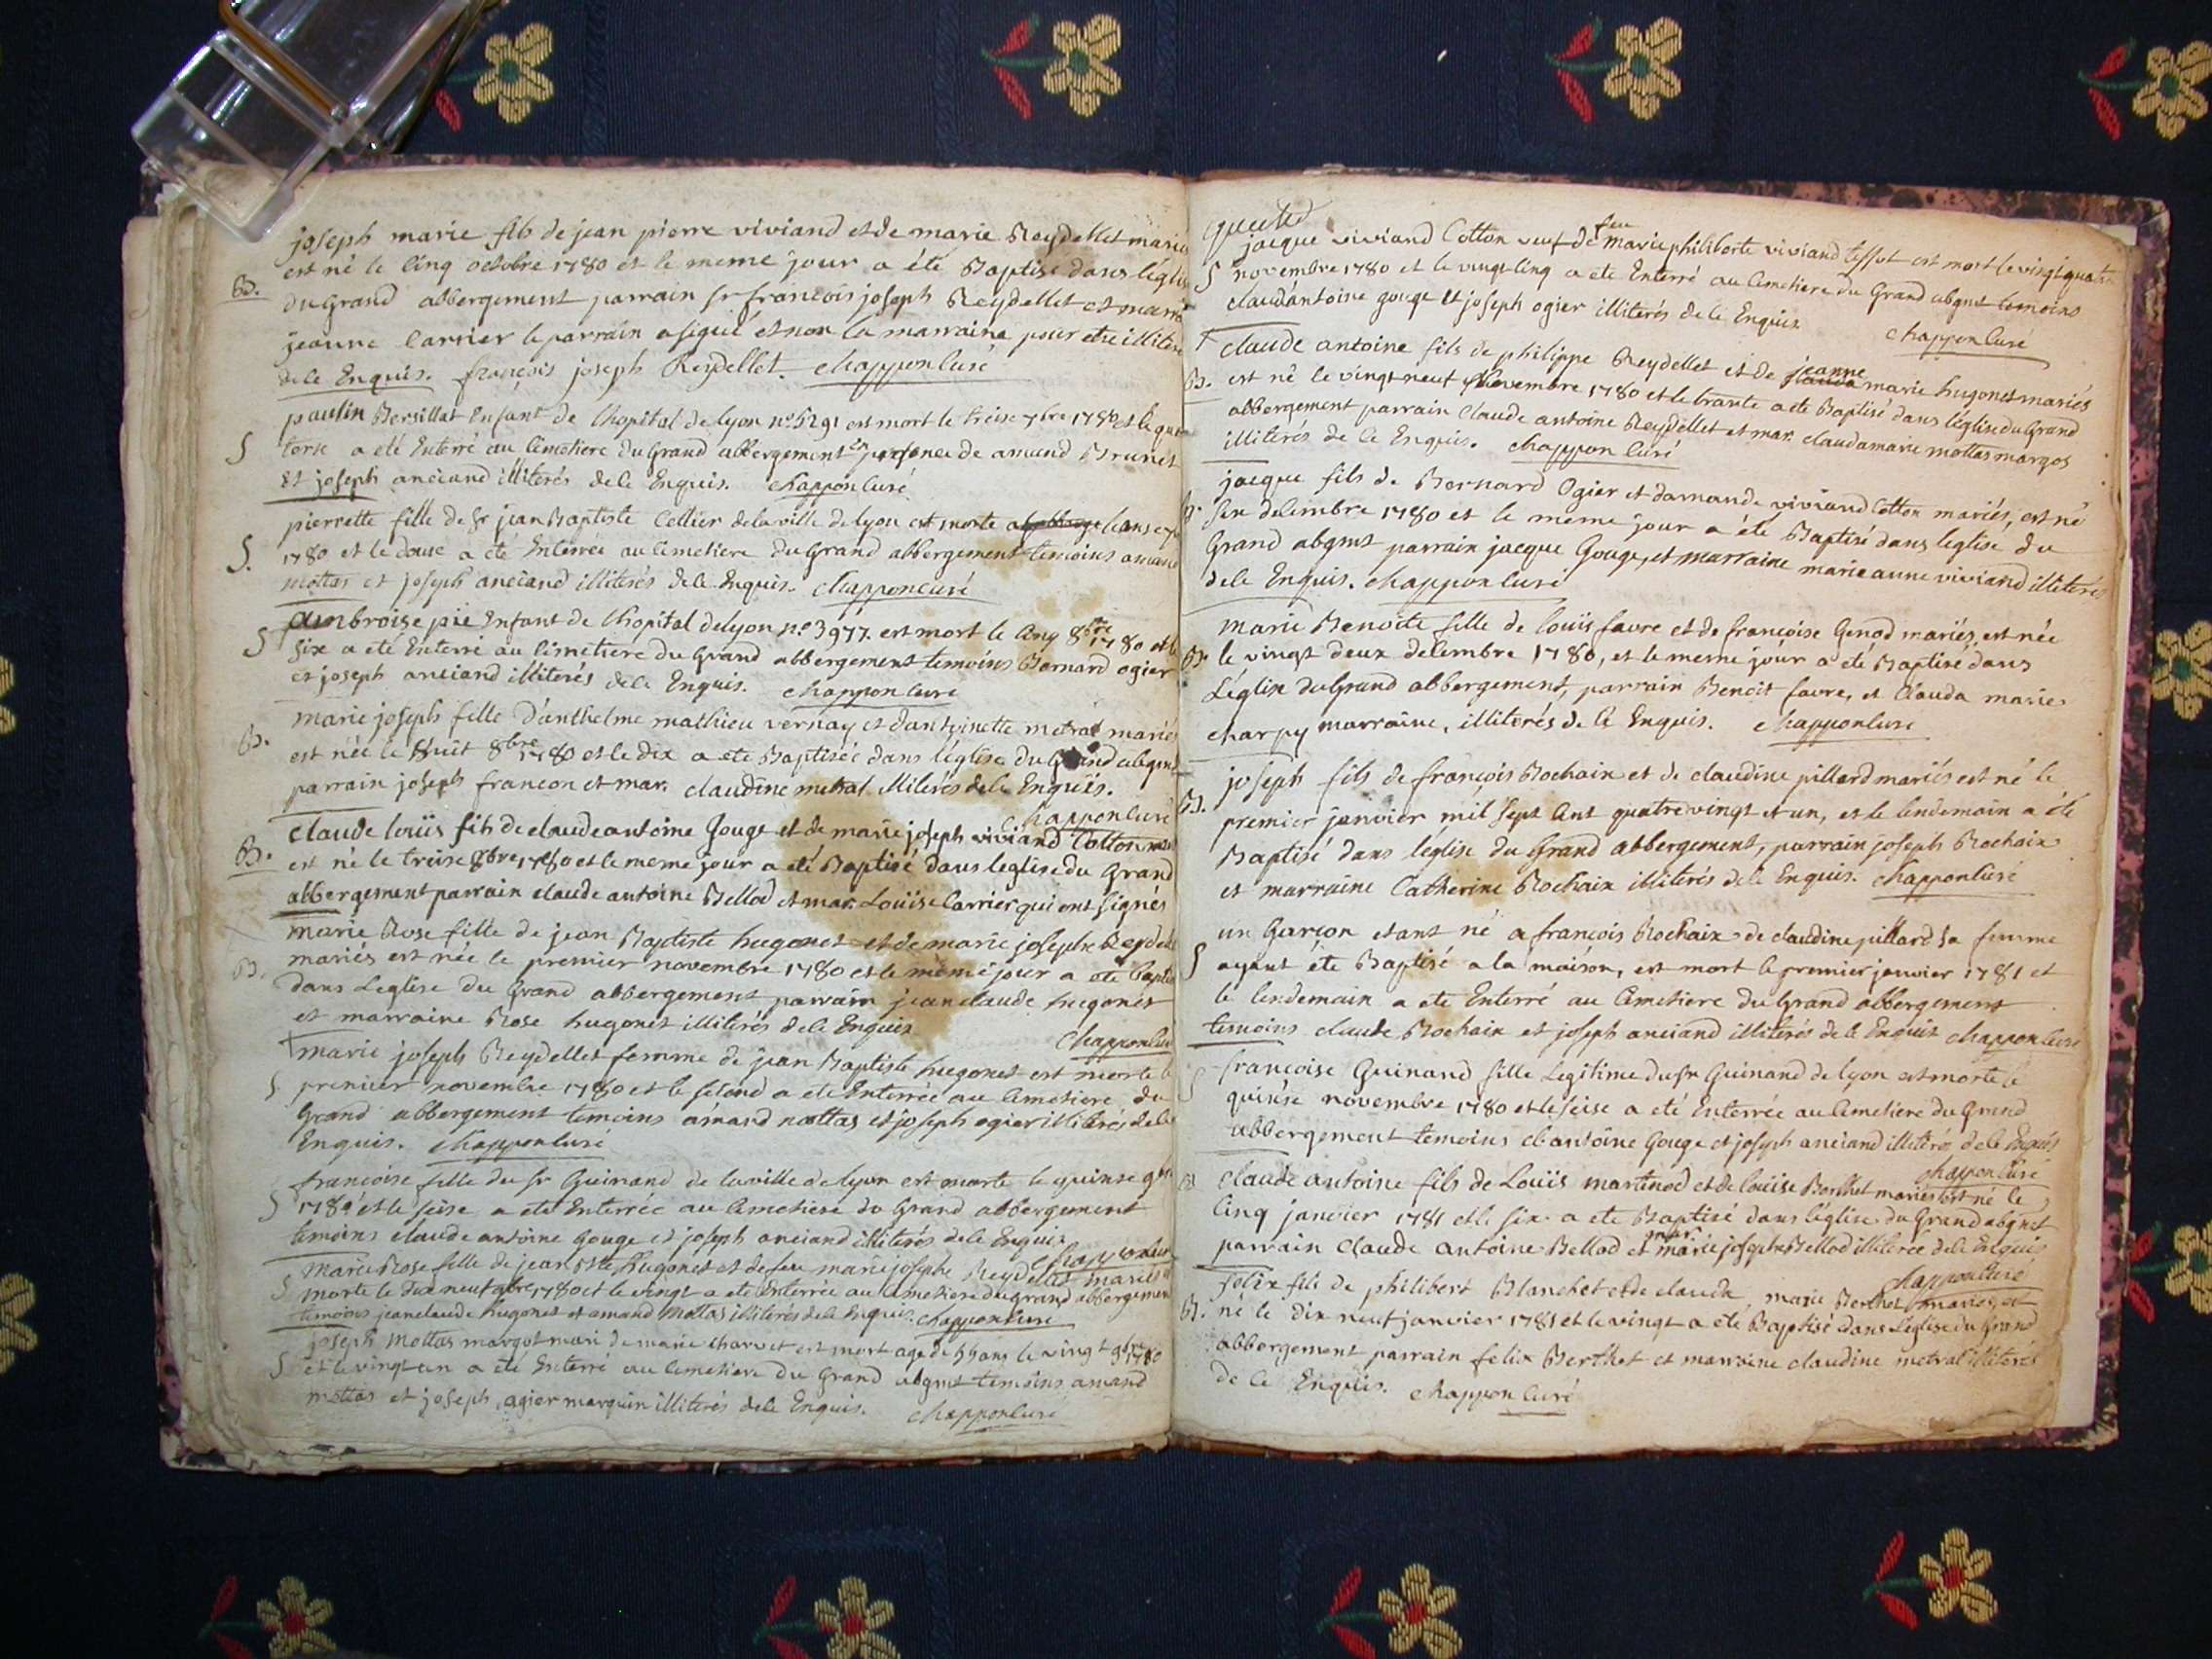 joseph marie fils de jean pierre viviand et de marie Reydellet mariés
est né le cinq octobre 1780 et le meme jour a été Baptisé dans léglise
B. du Grand abbergement parrain sr francois joseph Reydellet et marr
jeanne Carrier le parrain a signé et non la marraine pour etre illiteré
de ce Enquis. françois joseph Reydellet. chappon curé
paulin Bersillat Enfant de lhopital de lyon no. 5291 est mort le treise 7bre 1780 et le qua
S torse a eté Enterré au cimetiere du Grand abbergement en presence de amand Brunet
et joseph anciand illiterés de ce Enquis. chappon curé
pierrette fille de sr jean Baptiste Cellier de la ville de lyon est morte
S. 1780 et le douse a eté Enterrée au cimetiere du Grand abbergement temoins amand
mottas et joseph anciand illiterés de ce Enquis. chappon curé
ambroise pié Enfant de lhopital de lyon no. 3977. est mort le cinq 8bre 1780 et le
S six a eté Enterré au cimetiere du Grand abbergement temoins Bernard ogier
et joseph anciand illiterés de ce Enquis. chappon curé
marie joseph fille d'anthelme mathieu vernay et d'antoinette metral mariés
B. est née le huit 8bre 1780 et le dix a ete Baptisée dans léglise du Grand abgmt
parrain joseph francon et mar. claudine metral illiterés de ce Enquis.
chappon curé
claude louis fils de claude antoine Gouge et de marie joseph viviand Cotton mariés
B. est né le treise 8bre 1780 et le meme jour a eté Baptisé dans leglise du Grand
abbergement parrain claude antoine Bellod et mar. Louise Carrier qui ont signés
marie Rose fille de jean Baptiste hugonet et de marie josephe Reydellet
B. mariés est née le premier novembre 1780 et le même jour a eté baptisé
dans Leglise du Grand abbergement parrain jean claude hugonet
et marraine Rose hugonet illiterés de ce Enquis
chappon curé
† marie joseph Reydellet femme de jean Baptiste hugonet est morte le
S premier novembre 1780 et le second a ete Enterrée au cimetiere du
Grand abbergement temoins amand mottas et joseph ogier illiterés de ce
Enquis. chappon curé
francoise fille du sr Guinand de la ville de lyon est morte le quinse 9bre
S 1780 et le seise a ete Enterrée au cimetiere du Grand abbergement
temoins claude antoine Gouge et joseph anciand illiterés de ce Enquis
chappon curé
marie Rose fille de jean Bte hugonet et de feu marie josephe Reydellet mariés
S morte le dix neuf 9bre 1780 et le vingt a ete Enterrée au cimetiere du grand abbergement
temoins jean claude hugonet et amand mottas illiterés de ce Enquis. chappon curé
joseph mottas margot mari de marie charvet est mort agé de 55 ans le vingt 9bre 1780
S et le vingt un a ete Enterré au cimetiere du Grand abgmt temoins amand
mottas et joseph ogier marquin illiterés de ce Enquis. chappon curé
jacque viviand Cotton veuf de feu marie philiberte viviand tissot est mort le vingt quatre
S novembre 1780 et le vingt cinq a ete Enterré au cimetiere du Grand abgmt temoins
claud'antoine gouge et joseph ogier illiterés de ce Enquis
chappon curé
† claude antoine fils de philippe Reydellet et de jeanne marie hugonet mariés
B. est né le vingt neuf novembre 1780 et le trante a ete Baptisé dans léglise du Grand
abbergement parrain claude antoine Reydellet et mar. clauda marie mottas margos
illiterés de ce Enquis. chappon curé
jacque fils de Bernard Ogier et damande viviand Cotton mariés, est né
B. six decembre 1780 et le meme jour a été Baptisé dans léglise du
Grand abgmt parrain jacque Gouge, et marraine marie anne viviand illiterés
de ce Enquis. chappon curé
marie Benoite fille de louis favre et de françoise Genod mariés, est née
B. le vingt deux decembre 1780, et le meme jour a été Baptisé dans
L'église du Grand abbergement, parrain Benoit favre, et Clauda marie
charpy marraine, illiterés de ce Enquis. chappon curé
joseph fils de françois Rochaix et de claudine pillard mariés est né le
B. premier janvier mil sept cent quatre vingt et un, et le lendemain a été
Baptisé dans léglise du Grand abbergement, parrain joseph Rochaix
et marraine Catherine Rochaix illiterés de ce Enquis. chappon curé
un Garçon etant né a francois Rochaix de claudine pillard sa femme
S ayant éte Baptisé a la maison, est mort le premier janvier 1781 et
le lendemain a ete Enterré au cimetiere du Grand abbergement
temoins claude Rochaix et joseph anciand illiterés de ce Enquis chappon curé
françoise Guinand fille Legitime du sr Guinand de lyon est morte le
S quinse novembre 1780 et le seise a eté Enterrée au cimetiere du Grand
abbergement temoins cl. antoine Gouge et joseph anciand illiterés de ce Enquis
chappon curé
B claude antoine fils de Louis martinod et de louise Berthet mariés est né le
cinq janvier 1781 et le six a ete Baptisé dans l'église du Grand abgmt
parrain Claude antoine Bellod et mar. marie josephe Bellod illiterée de ce Enquis
chappon curé
felix fils de philibert Blanchet et de clauda marie Berthet mariés, est
B. né le dix neuf janvier 1781 et le vingt a été Baptisé dans Leglise du Grand
abbergement parrain felix Berthet et marraine claudine metral illiterés
de ce Enquis. chappon curé